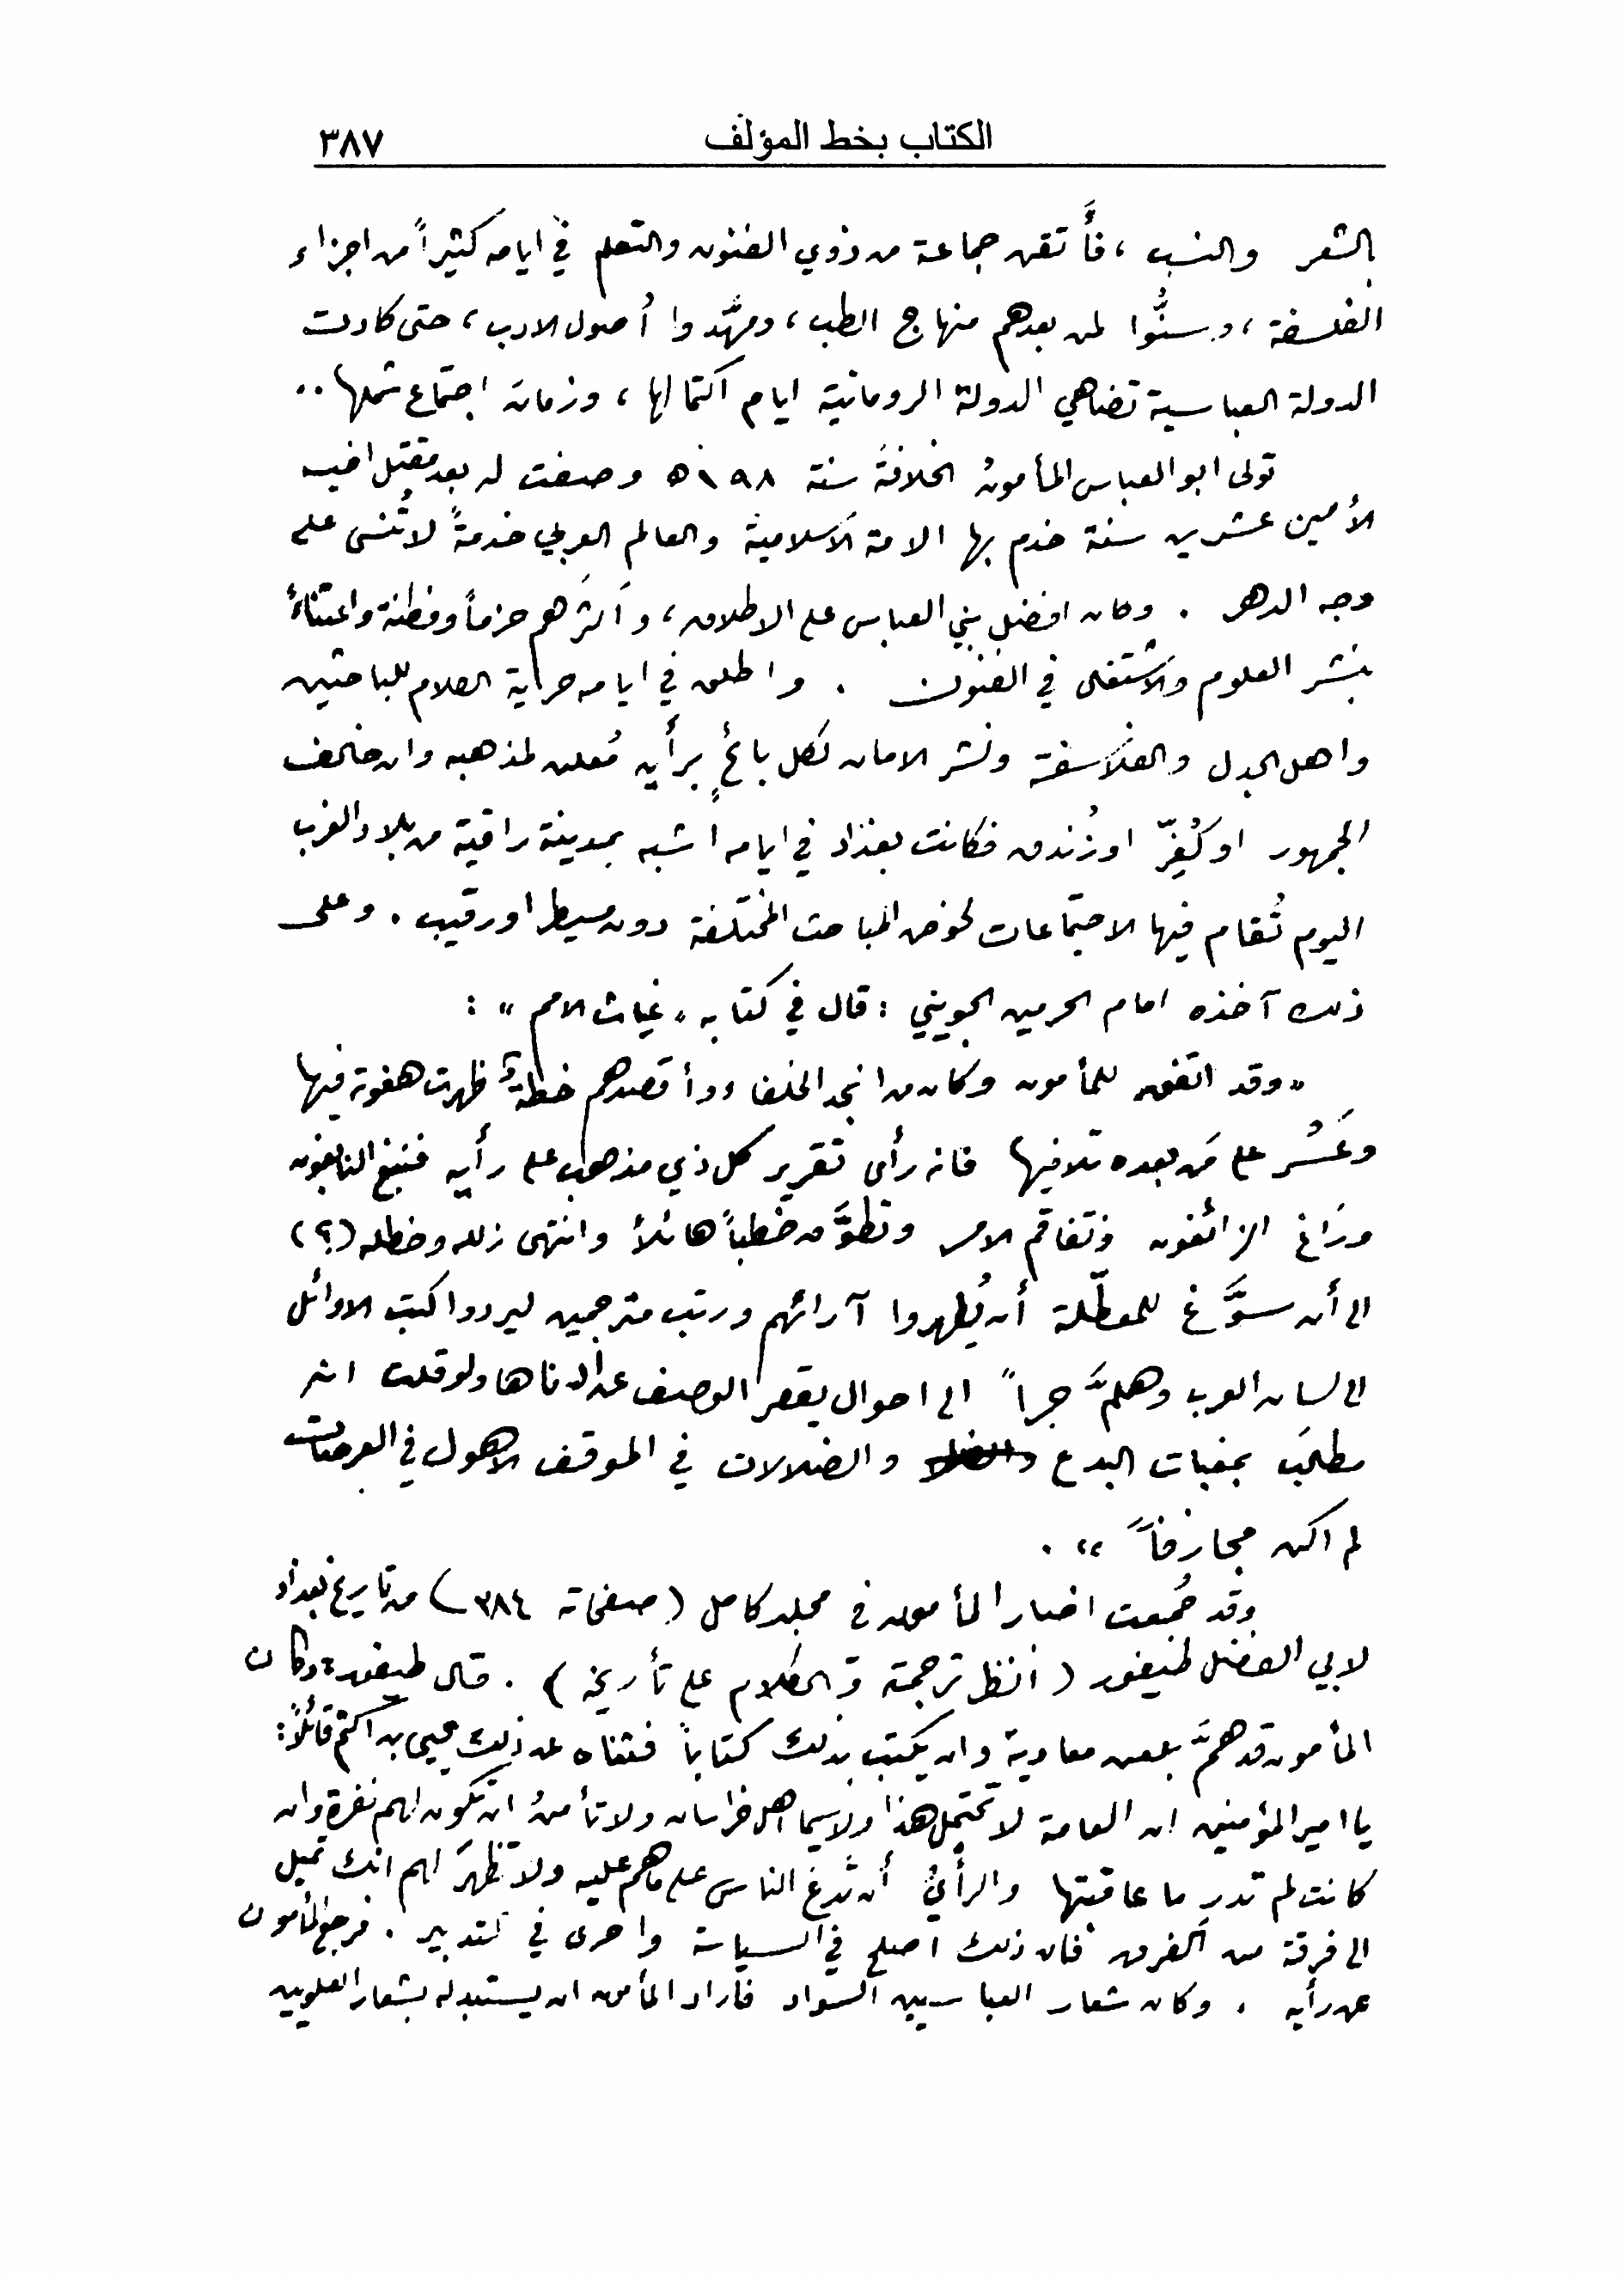 الكتاب بخط المؤلف ٣٨٧
بالشعر والنسب ، فأَتقن جماعة من ذوي الفنون والتعلم في ايامه كثيراً من اجزاء
الفلسفة ، وسنُّوا لمن بعدهم منهاج الطب ، ومهَّدوا أُصول الادب ، حتى كادت
الدولة العباسية تضاهي الدولة الرومانية ايام اكتمالها ، وزمان اجتماع شملها ..
تولى ابو العباس المأمونُ الخلافةَ سنة ١٩٨ ه وصفت له بعد مقتل اخيه
الأمين عشرين سنة خدم بها الامة الاسلامية والعالم العربي خدمةً لا تُنسى على
وجه الدهر . وكان افضل بني العباس على الاطلاق ، واكثرهم حزماً وفطنة واعتناءً
بنشر العلوم والاشتغال في الفنون . واطلق في ايامه حراية الكلام للباحثين
واهل الجدل والفلاسفة ونشر الامان لكل بائحٍ برأيه مُعلن لمذهبه وان خالف
الجمهور او كُفِّر او زُندق فكانت بغداد في ايامه اشبه بمدينة راقية من بلاد الغرب
اليوم تُقام فيها الاجتماعات لخوض المباحث المختلفة دون مسيطر او رقيب . وعلى
ذلك آخذه امام الحرمين الجويني : قال في كتابه « غياث الامم » :
« وقد اتفق للمأمون وكان من انجد الخلفاء وأقصدهم خطةٌ ظهرت هفوته فيها
وعَسُر على مَن بعده تلافيها فانه رأى تقرير كل ذي مذهب على رأيه فنبغ النابغون
وزَاغ الزائغون وتفاقم الامر وتطوَّق خطباً هائلاً وانتهى زلله وخطله (؟)
الى أن سوَّغ للمعطّلة أن يُظهروا آرائهم ورتب مترجمين ليردوا كتب الاوائل
الى لسان العرب وهلمَّ جراً الى احوال يقصر الوصف عن ادناها ولو قلت انه
مطلَب بمغبات البدع والضلالات في الموقف الاهول في العرصات
لم اكن مجازفاً » .
وقد جُمعت اخبار المأمون في مجلد كامل (صفحاته ٣٨٤) من تاريخ بغداد
لابي الفضل طيفور (انظر ترجمته والكلام على تأريخه) . قال طيفور : وكان
المأمون قد همَّ بلعن معاوية وان يكتب بذلك كتاباً فثناه عن ذلك يحيى بن اكثم قائلاً :
يا امير المؤمنين ان العامة لا تحتمل هذا ولاسيما اهل خراسان ولا تأمنُ ان تكون لهم نفرة وان
كانت لم تدرِ ما عاقبتها والرأيُ أن تدع الناس على ما هم عليه ولا تظهرَ لهم انك تميل
الى فرقة من الفرق فان ذلك اصلح في السياسة واحرى في التدبير . فرجع المأمون
عن رأيه . وكان شعار العباسيين السواد فاراد المأمون ان يستبدله بشعار العلويين